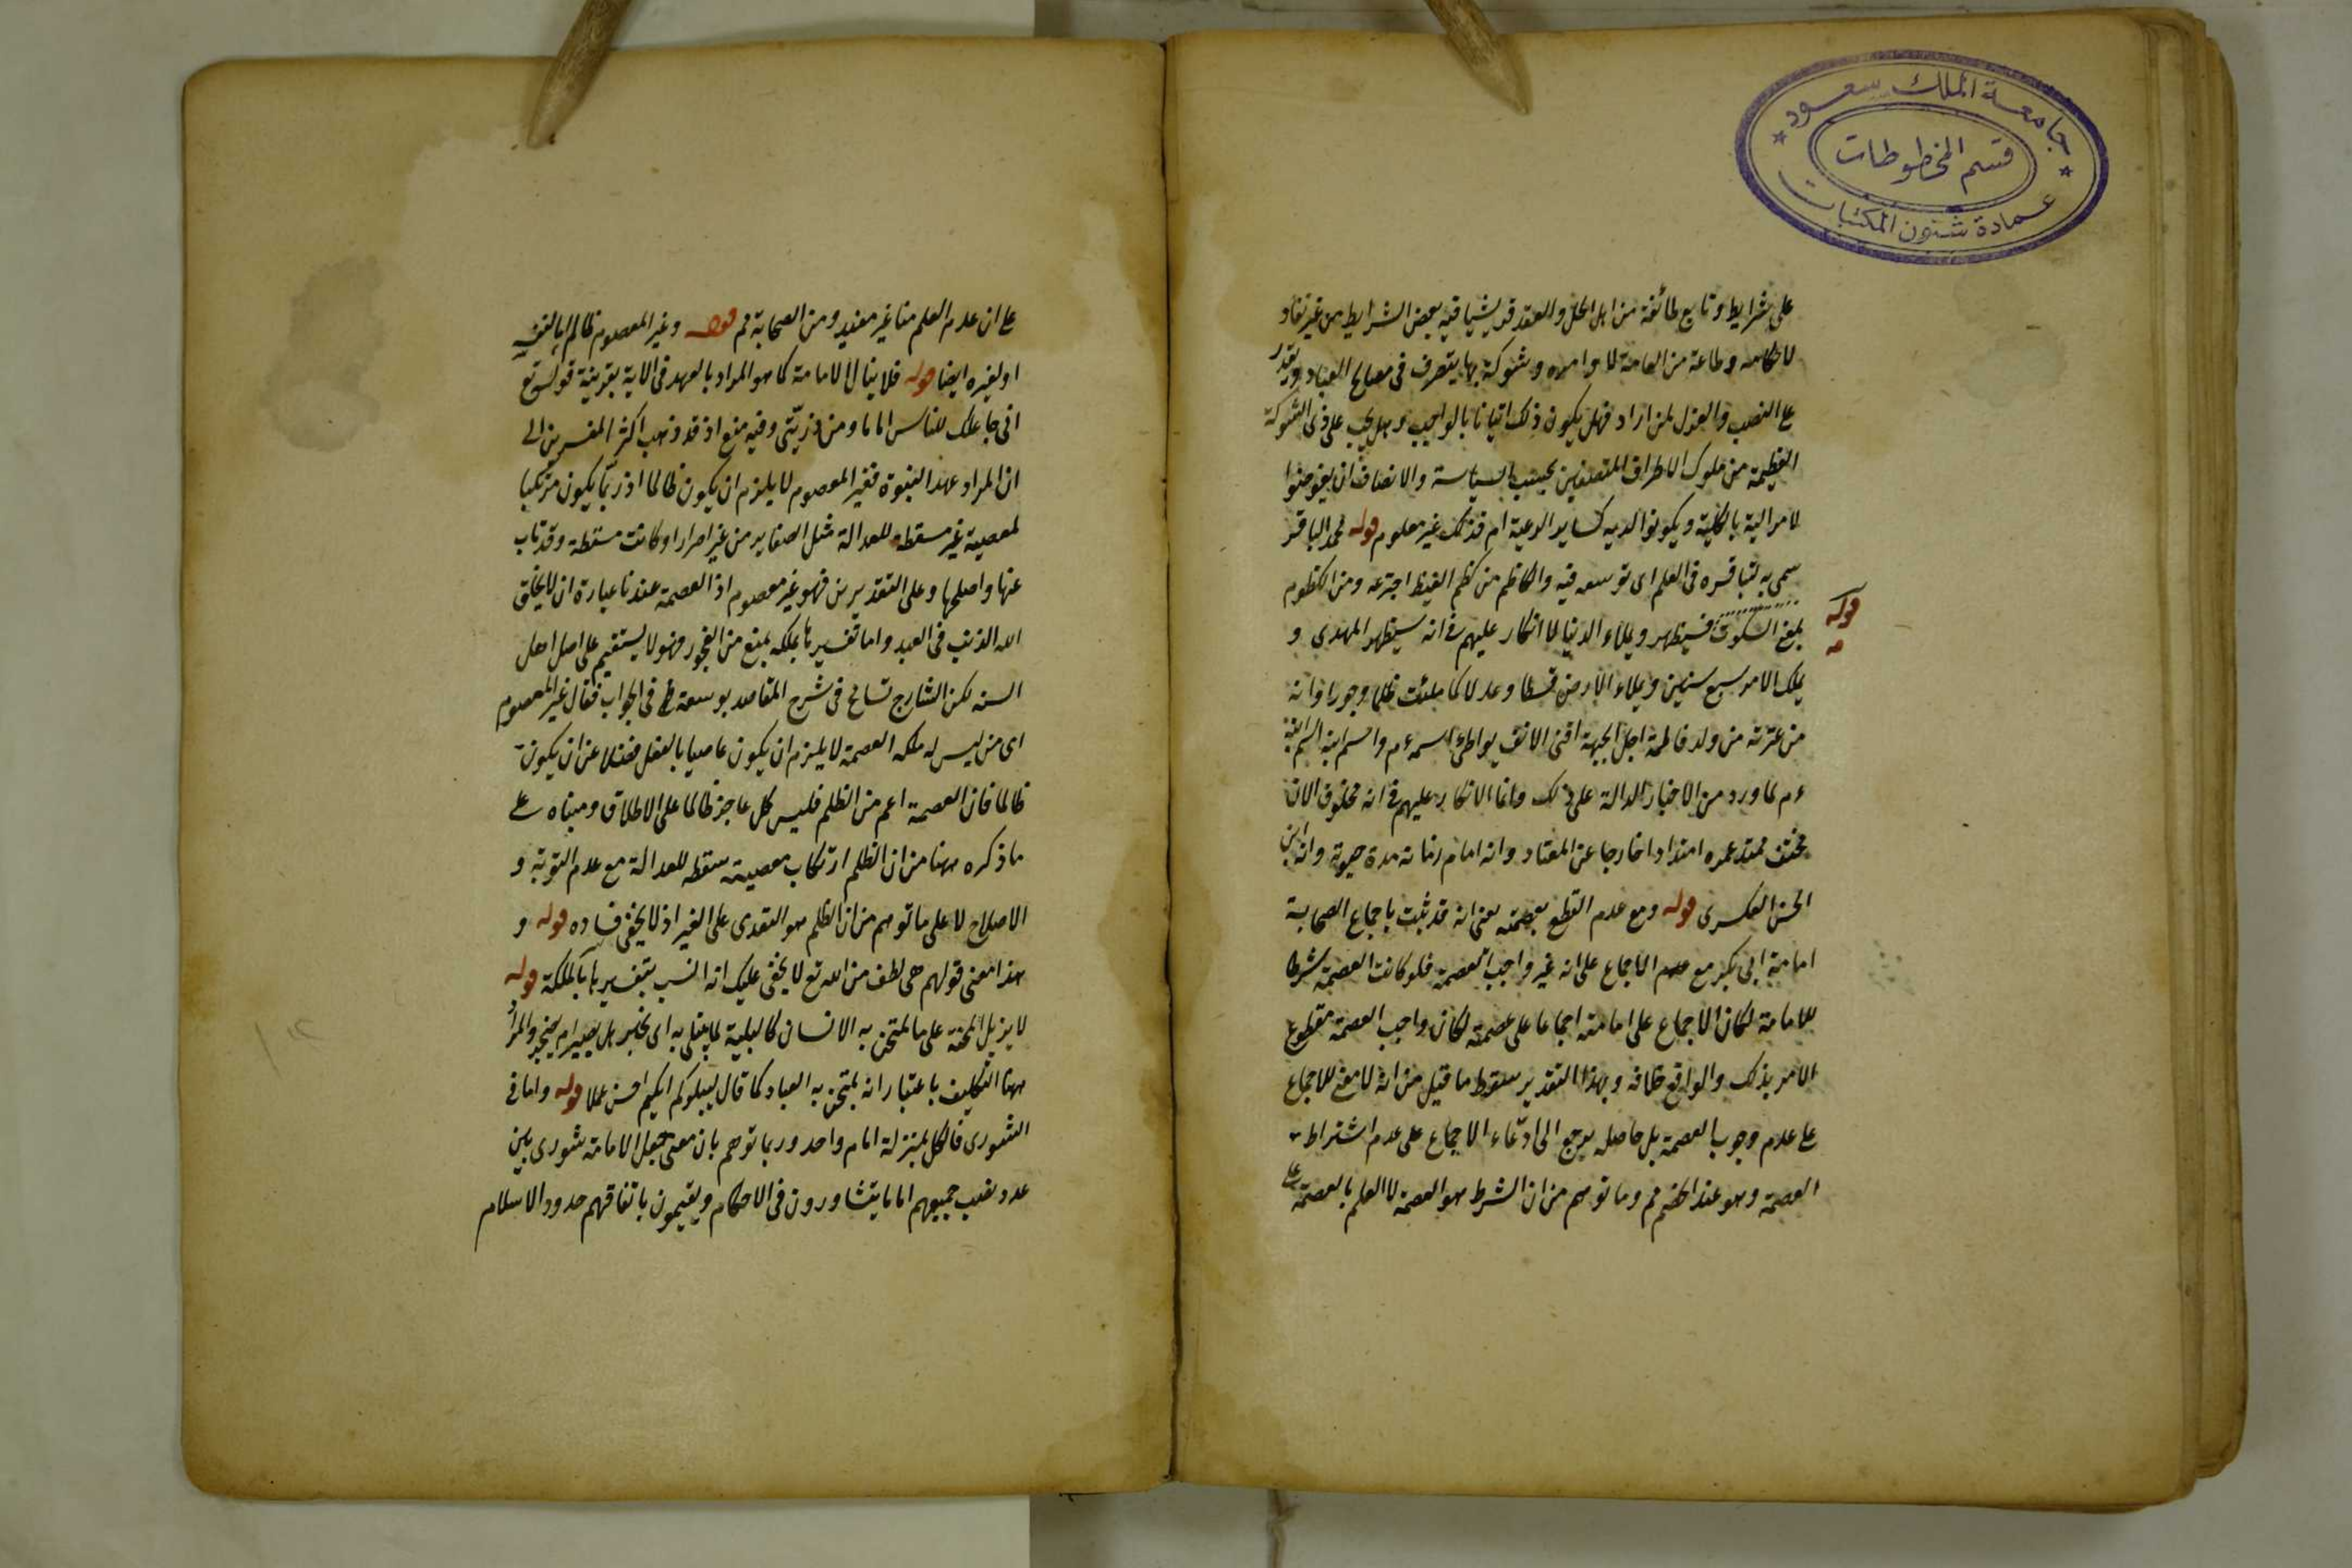 جامعة الملك سعود
قسم المخطوطات
عمادة شئون المكتبات
على شرايط وتابع طائفة من اهل الحل والعقد قريشيا فيه بعض الشرايط من غير نفاذ
لاحكامه وطاعة من العامة لاوامره وشوكة بها يتصرف فى مصالح العباد ويقدر
على النصب والعزل لمن اراد فهل يكون ذلك اتيانا بالواجب وهل يجب على ذى الشوكة
العظيمة من ملوك الاطراف المتصفين بحسن السياسة والانصاف ان يفوضوا
الامر اليه بالكلية ويكونوا لديه كساير الرعية ام فذلك غير معلوم قوله محمد الباقر
سمى به لتباقره فى العلم اى توسعه فيه والكاظم من كظم الغيظ اجترعه ومن الكظوم
قوله
بمعنى السكوت فسيظهر ويملاء الدنيا لا انكار عليهم فى انه سيظهر المهدى و
يملك الامر سبع سنين ويملاء الارض قسطا وعدلا كما ملئت ظلما وجورا وانه
من عترته من ولد فاطمة اجل الجبهة اقنى الانف يواطئ اسمه اسمه عم واسم ابيه اسم ابيه
عم لما ورد من الاخبار الدالة على ذلك وانما الانكار عليهم فى انه مخلوق الان
مختف ممتد عمره امتدادا خارجا عن المعتاد وانه امام زمانه مدة حيوته وانه ابن
الحسن العسكرى قوله ومع عدم القطع بعصمته يعنى انه قد ثبت باجماع الصحابة
امامة ابى بكر مع الاجماع على انه غير واجب العصمة فلو كانت العصمة شرطا
للامامة لكان الاجماع على امامته اجماعا على عصمته لكان واجب العصمة مقطوع
الامر بذلك والواقع خلافه وبهذا التقدير سقوط ما قيل من انه لا معنى للاجماع
على عدم وجوب العصمة بل حاصله يرجع الى ادعاء الاجماع على عدم اشتراط
العصمة وهو عند الخصم مم وما توهم من ان الشرط هو العصمة لا العلم بالعصمة على
على ان عدم العلم منا غير مفيد ومن الصحابة مم قوله وغير المعصوم ظالم اما لنفسه
او لغيره ايضا قوله فلا ينال الامامة كما هو المراد بالعهد فى الاية بقرينة قوله تع
انى جاعلك للناس اماما ومن ذريتى وفيه منع اذ قد ذهب اكثر المفسرين الى
ان المراد عهد النبوة فغير المعصوم لا يلزم ان يكون ظالما اذ ربما يكون مرتكبا
لمعصية غير مسقطة للعدالة مثل الصغاير من غير اصرار او كانت مسقطة وقد تاب
عنها واصلحها وعلى التقديرين فهو غير معصوم اذ العصمة عندنا عبارة ان لا يخلق
الله الذنب فى العبد واما تفسيرها بملكه يمنع من الفجور فهو لا يستقيم على اصل اهل
السنه لكن الشارح تسامح فى شرح المقاصد بوسعة فى الجواب فقال غير المعصوم
اى من ليس له ملكه العصمة لا يلزم ان يكون عاصيا بالفعل فضلا عن ان يكون
ظالما فان العصمة اعم من الظلم فليس كل عاجز ظالما على الاطلاق ومبناه على
ما ذكره ههنا من ان الظلم ارتكاب معصية مسقطه للعدالة مع عدم التوبة و
الاصلاح لا على ما توهم من ان الظلم هو التعدى على الغير اذ لا يخفى فساده قوله و
هذا معنى قولهم هى لطف من الله تع لا يخفى عليك انه انسب بتفسيرها بالملكة قوله
لا يزيل المحنة على ما يمتحن به الانسان كالبلية لما يبتلى به اى يختبر هل يصير ام يجير والمراد
ههنا التكليف باعتبار انه يمتحن به العباد كما قال ليبلوكم ايكم احسن عملا قوله واما فى
الشورى فالكل بمنزلة امام واحد وربما توهم بان معنى جعل الامامة شورى بين
عدد نصب جميعهم اماما يتشاورون فى الاحكام ويقيمون باتفاقهم حدود الاسلام